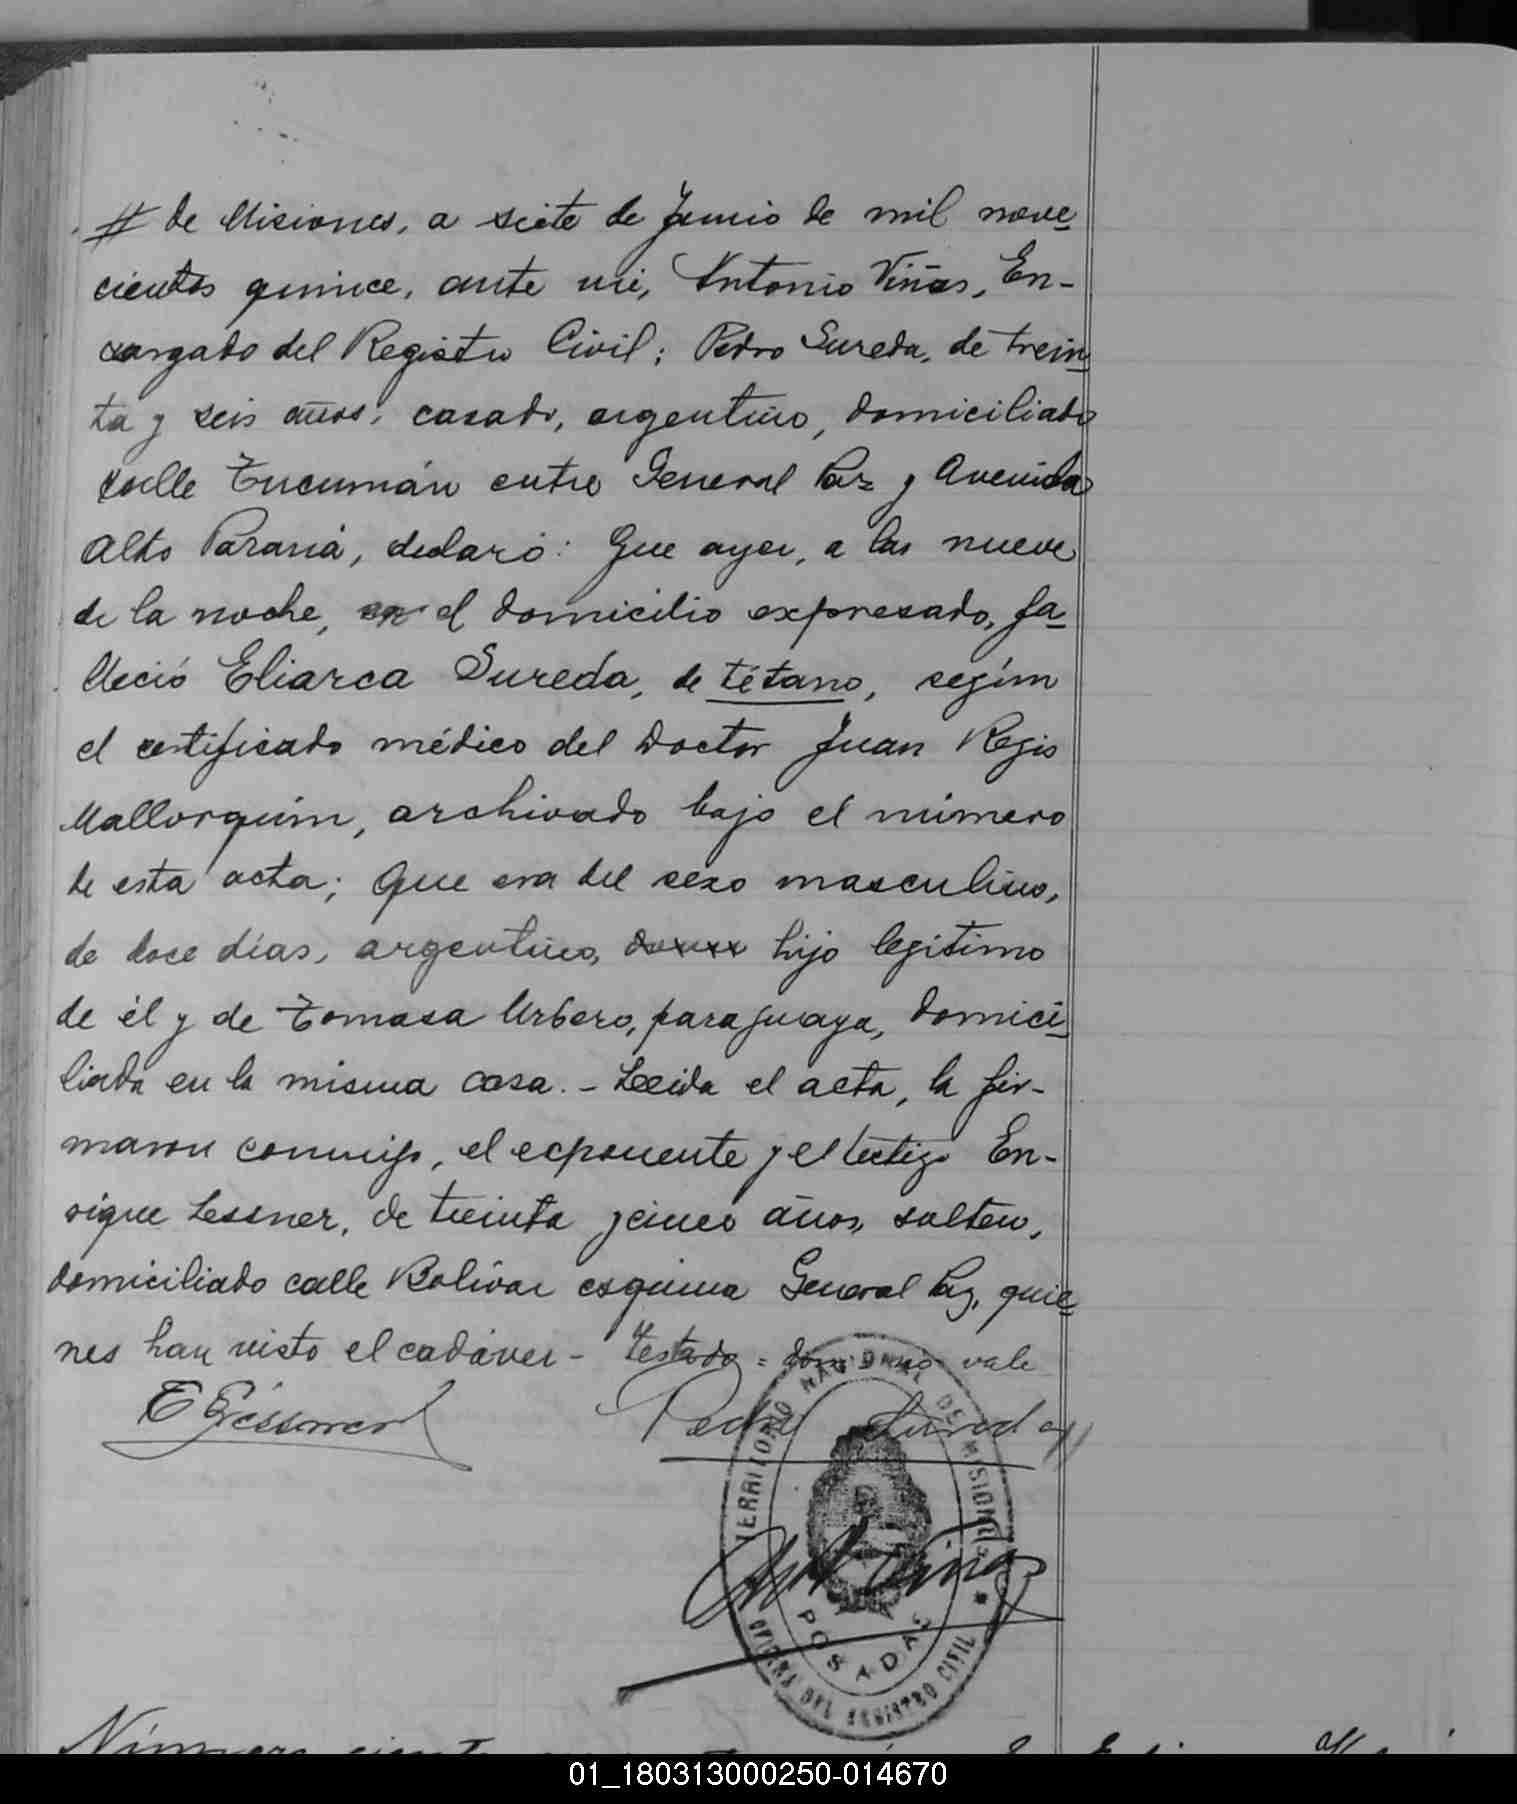 # de Misiones, a siete de Junio de mil nove
cientos quince, ante mi, Antonio Viñas, En-
cargado del Registro Civil; Pedro Sureda, de trein
ta y seis años, casado, argentino, domiciliado
calle Tucumán entre General Paz y Avenida
Alto Paraná, declaró: Que ayer, a las nueve
de la noche, en el domicilio expresado, fa
lleció Eliarca Sureda, de tétano, según
el certificado médico del Doctor Juan Regis
Mallorquin, archivado bajo el número
de esta acta; Que era del sexo masculino,
de doce días, argentino, hijo legitimo
de él y de Tomasa Urbero, paraguaya, domici
liada en la misma casa. - Leeida el acta, la fir-
maron conmigo, el exponente y el testigo En-
rique Lessner, de treinta y cinco años, soltero,
domiciliado calle Bolívar esquina General Paz, quie
nes han visto el cadáver - Testado = vale
E Gessner Pedro Sureda
TERRITORIO NACIONAL DE MISIONES
Ant Viñas
POSADAS
OFICINA DEL REGISTRO CIVIL
Número
01_180313000250-014670